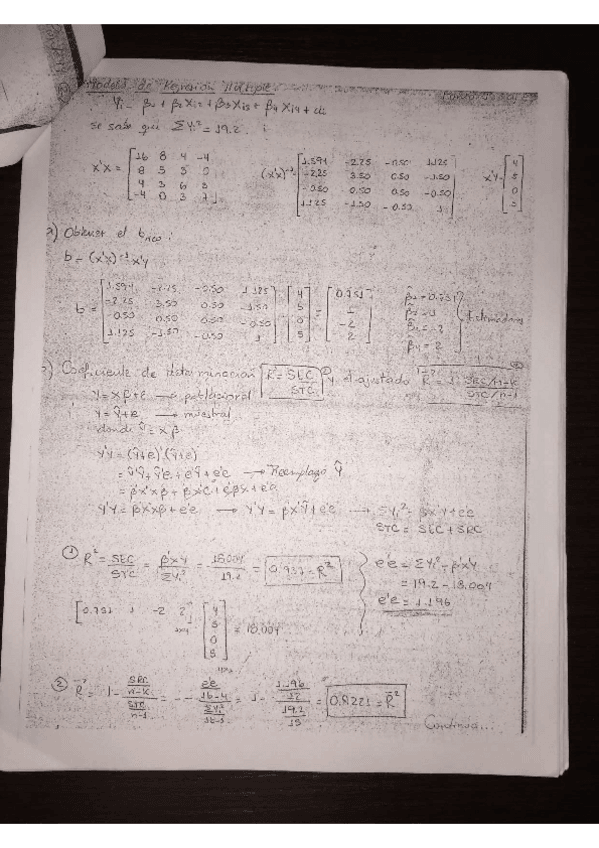 Modelo de Regresión Múltiple
Yi = β1 + β2Xi2 + β3Xi3 + β4Xi4 + ui
se sabe que ΣYi² = 19.2
X'X = [16 8 4 -4
8 5 5 0
4 3 6 3
-4 0 3 7]
(X'X)⁻¹ = [1.594 -2.25 -0.50 1.125
-2.25 3.50 0.50 -1.50
-0.50 0.50 0.50 -0.50
1.125 -1.50 -0.50 1]
X'Y = [4
5
0
5]
Obtener el b
b = (X'X)⁻¹ X'Y
b = [1.594 -2.25 -0.50 1.125
-2.25 3.50 0.50 -1.50
-0.50 0.50 0.50 -0.50
1.125 -1.50 -0.50 1] [4
5
0
5] = [0.751
1
-2
2]
β̂1 = 0.751
β̂2 = 1
β̂3 = -2
β̂4 = 2
Estimadores
Coeficiente de determinación R² = SEC/STC y el ajustado R̄² = 1- SRC/n-k / STC/n-1
Y = Xβ + e → poblacional
Y = Ŷ + e → muestral
donde Ŷ = Xβ
Y'Y = (Ŷ+e)'(Ŷ+e)
= Ŷ'Ŷ + Ŷ'e + e'Ŷ + e'e → Reemplazo Ŷ
= β'X'Xβ + β'X'e + e'βX + e'e
Y'Y = β'X'Xβ + e'e → Y'Y = β'X'Y + e'e → ΣYi² = β'X'Y + e'e
STC = SEC + SRC
① R² = SEC/STC = β'X'Y/ΣYi² = 18.004/19.2 = 0.937 = R²
e'e = ΣYi² - β'X'Y
= 19.2 - 18.004
e'e = 1.196
[0.751 1 -2 2] [4
5
0
5] = 18.004
② R̄² = 1 - SRC/n-k / STC/n-1 = e'e/16-4 / ΣYi²/16-1 = 1 - 1.196/12 / 19.2/15 = 0.9221 = R̄²
Continua...